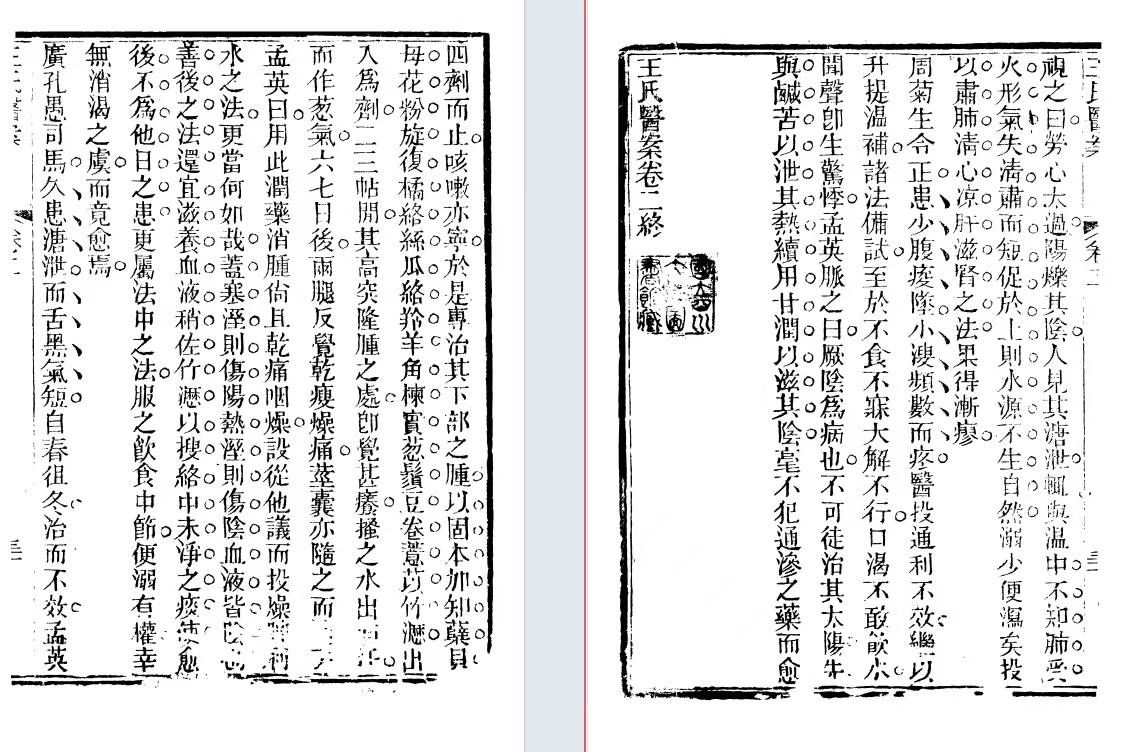 四劑而止咳嗽亦寧於是專治其下部之腫以固本加知蘗貝
母花粉旋復橘絡絲瓜絡羚羊角楝實葱鬚豆卷薏苡竹瀝出
入爲劑二三帖間其高突隆腫之處卽覺甚癢搔之水出
而作葱氣六七日後兩腿反覺乾瘦燥痛莖囊亦隨之而
孟英曰用此潤藥消腫尙且乾痛咽燥設從他議而投燥利
水之法更當何如哉蓋寒溼則傷陽熱溼則傷陰血液皆陰也
善後之法還宜滋養血液稍佐竹瀝以搜絡中未淨之痰使愈
後不爲他日之患更屬法中之法服之飮食中節便溺有權幸
無消渴之虞而竟愈焉
廣孔愚司馬久患溏泄而舌黑氣短自春徂冬治而不效孟英
王氏醫案 卷二
王氏醫案 卷二
視之曰勞心太過陽爍其陰人見其溏泄輒與温中不知肺受
火形氣失清肅而短促於上則水源不生自然溺少便瀉矣投
以肅肺清心凉肝滋腎之法果得漸瘳
周菊生令正患少腹痠墜小溲頻數而疼醫投通利不效繼以
升提温補諸法備試至於不食不寐大解不行口渴不敢飮水
聞聲卽生驚悸孟英脈之曰厥陰爲病也不可徒治其太陽先
與鹹苦以泄其熱續用甘潤以滋其陰毫不犯通滲之藥而愈
王氏醫案卷二終